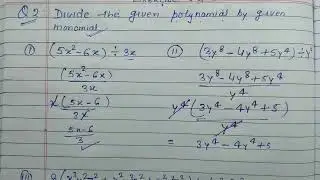 Q2 Divide the given polynomial by given
monomial
(i) (5x²-6x) ÷ 3x
(5x²-6x)
3x
x(5x-6)
3x
5x-6
3
(ii) (3y⁸-4y⁶+5y⁴) ÷ y⁴
3y⁸-4y⁶+5y⁴
y⁴
y⁴(3y⁴-4y²+5)
y⁴
= 3y⁴-4y²+5
(iii)